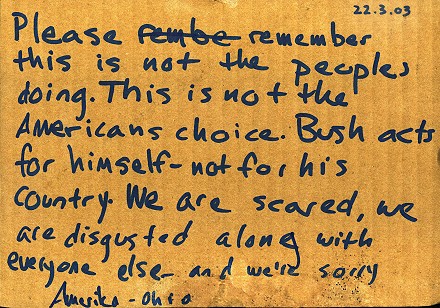 22.3.03
Please rembe remember
this is not the peoples
doing. This is not the
Americans choice. Bush acts
for himself - not for his
country. We are scared, we
are disgusted along with
everyone else and we're sorry
Amerika - Ohio